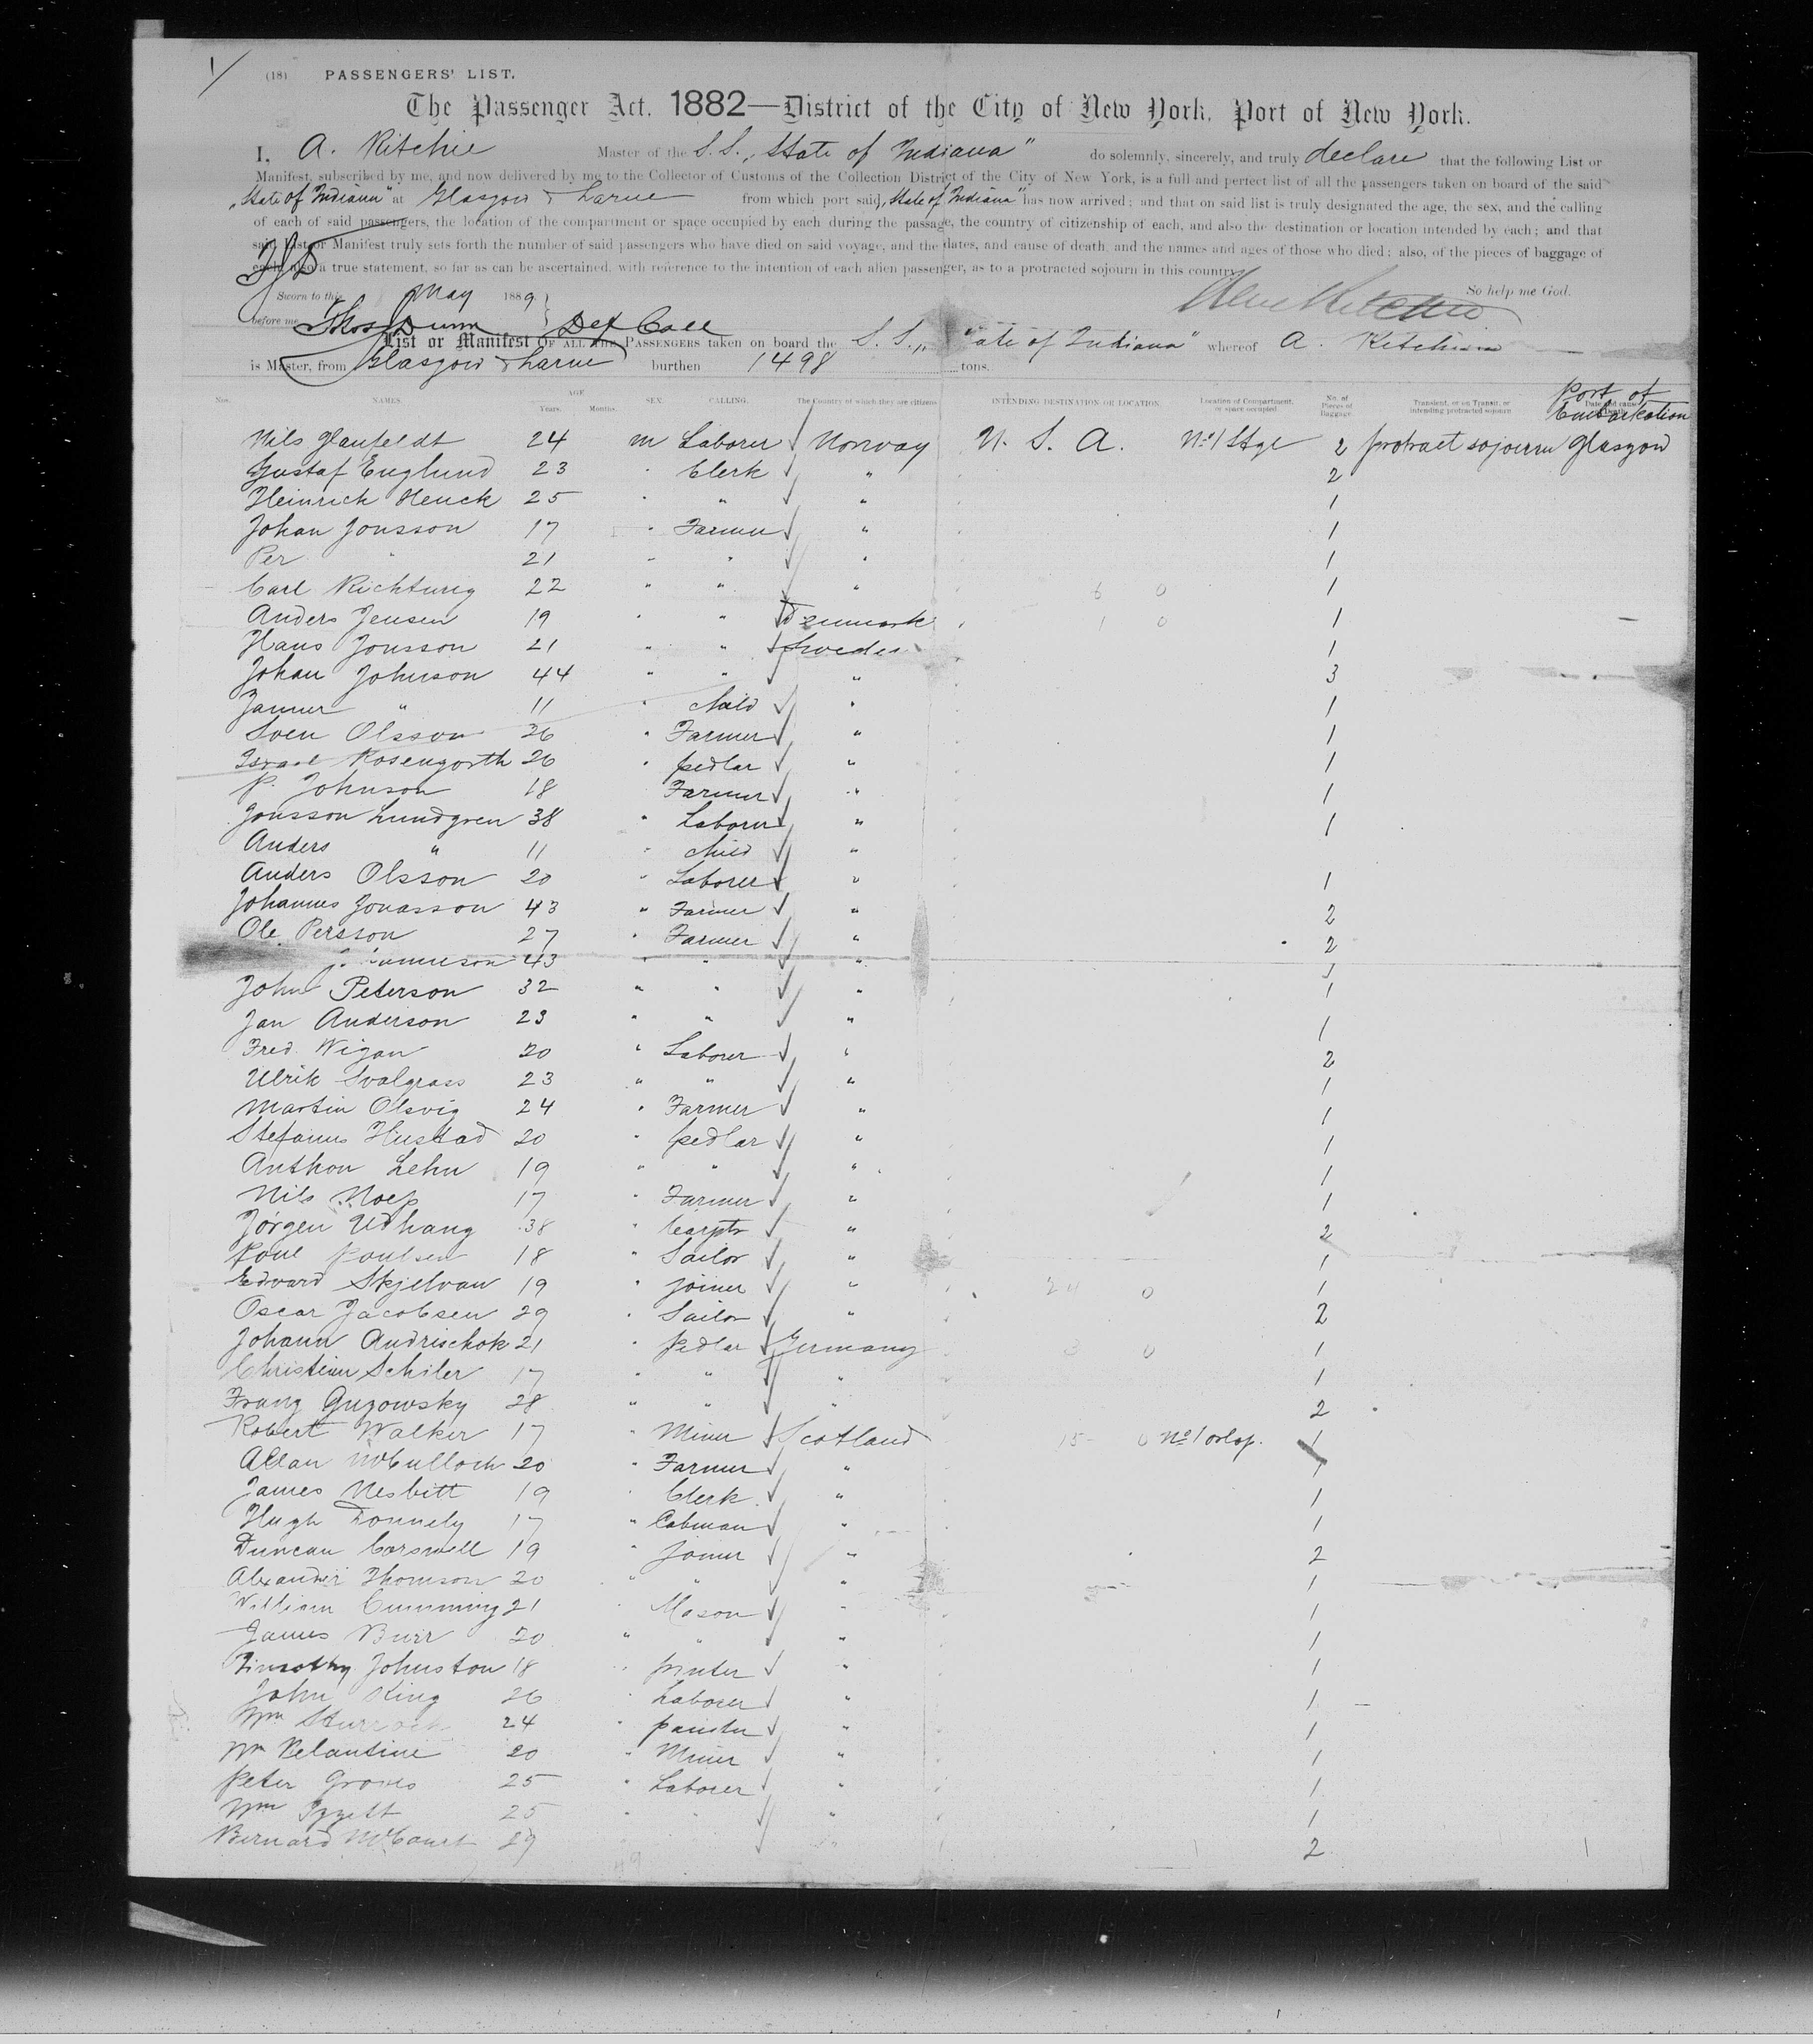 1/
(18) PASSENGERS' LIST.
The Passenger Act, 1882—District of the City of New York, Port of New York.
I, A. Ritchie Master of the S.S. „State of Indiana" do solemnly, sincerely, and truly declare that the following List or
Manifest, subscribed by me, and now delivered by me to the Collector of Customs of the Collection District of the City of New York, is a full and perfect list of all the passengers taken on board of the said
„State of Indiana" at Glasgow & Larne from which port said „State of Indiana" has now arrived; and that on said list is truly designated the age, the sex, and the calling
of each of said passengers, the location of the compartment or space occupied by each during the passage, the country of citizenship of each, and also the destination or location intended by each; and that
said List or Manifest truly sets forth the number of said passengers who have died on said voyage, and the dates, and cause of death, and the names and ages of those who died; also, of the pieces of baggage of
each; also a true statement, so far as can be ascertained, with reference to the intention of each alien passenger, as to a protracted sojourn in this country.
Sworn to this May 1889 So help me God.
before me Thos Dunn Dep Coll
List or Manifest OF ALL THE PASSENGERS taken on board the S. S. „ ate of Indiana" whereof A. Ritchie
is Master, from Glasgow & Larne burthen 1498 tons.
Port of
Embarkation
Nos. NAMES. AGE Years. Months. SEX. CALLING. The Country of which they are citizens INTENDING DESTINATION OR LOCATION. Location of Compartment, or space occupied No. of Pieces of Baggage. Transient, or on Transit, or intending protracted sojourn
Nils Glaufeldt 24 m Laborer Norway U. S. A. No 1 Stge 2 protract sojourn Glasgow
Gustaf Englund 23 " Clerk " 2
Heinrich Henck 25 " " " 1
Johan Jonsson 17 " Farmer " 1
Per " 21 " " " 1
Carl Richturig 22 " " " 6 0 1
Anders Jensen 19 " " Denmark 1 0 1
Hans Jonsson 21 " " Sweden 1
Johan Johnson 44 " " " 3
Janner " 11 " child " 1
Sven Olsson 36 " Farmer " 1
Israel Rosengorth 26 " pedlar " 1
P. Johnson 18 Farmer " 1
Jonsson Lundgren 38 " Laborer " 1
Anders " 11 " child "
Anders Olsson 20 " Laborer " 1
Johannes Jonasson 43 " Farmer " 2
Ole Persson 27 " Farmer " 2
43 " " " 1
John Peterson 32 " " " 1
Jan Anderson 23 " " " 1
Fred Wigan 20 " Laborer " 2
Ulrik Svalgrass 23 " " " 1
Martin Olsvig 24 " Farmer " 1
Stefanus Hustad 20 " pedlar " 1
Anthon Lehn 19 " " " 1
Nils Noep 17 " Farmer " 1
Jørgen Udhang 38 " Carptr " 2
Poul Poulsen 18 " Sailor " 1
Edvard Skjelvan 19 " joiner " 24 0 1
Oscar Jacobsen 29 " Sailor " 2
Johann Andrischok 21 " pedlar Germany 3 0 1
Christian Schiler 17 " " " 1
Franz Guzowsky 28 " " " 2
Robert Walker 17 " Miner Scotland 15 0 No 1 orlop. 1
Allan McCulloch 20 " Farmer " 1
James Nesbitt 19 " Clerk " 1
Hugh Donnely 17 " Cabman " 1
Duncan Carswell 19 " joiner " 2
Alexander Thomson 20 " " " 1
William Cumming 21 " Mason " 1
James Burr 20 " " " 1
Timothy Johnston 18 " printer " 1
John King 26 " Laborer " 1
Wm Sturrock 24 " painter " 1
Wm Pelantine 20 " Miner " 1
Peter Groves 25 " Laborer " 1
Wm Izzett 25 " " " 1
Bernard McCourt 29 " " " 2
49